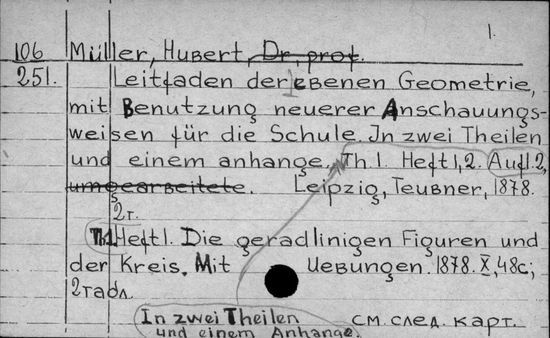 1.
106 Müller, Hubert, Dr. prof.
251. Leitfaden der ebenen Geometrie,
mit Benutzung neuerer Anschauungs-
weisen für die Schule. In zwei Theilen
und einem anhange. Th 1. Heft 1, 2. Aufl. 2,
umgearbeitete. Leipzig, Teubner, 1878.
2 т.
Th.1. Heft 1. Die geradlinigen Figuren und
der Kreis. Mit Uebungen. 1878. X, 48 c;
2 табл.
In zwei Theilen см. след. карт.
und einem Anhange.